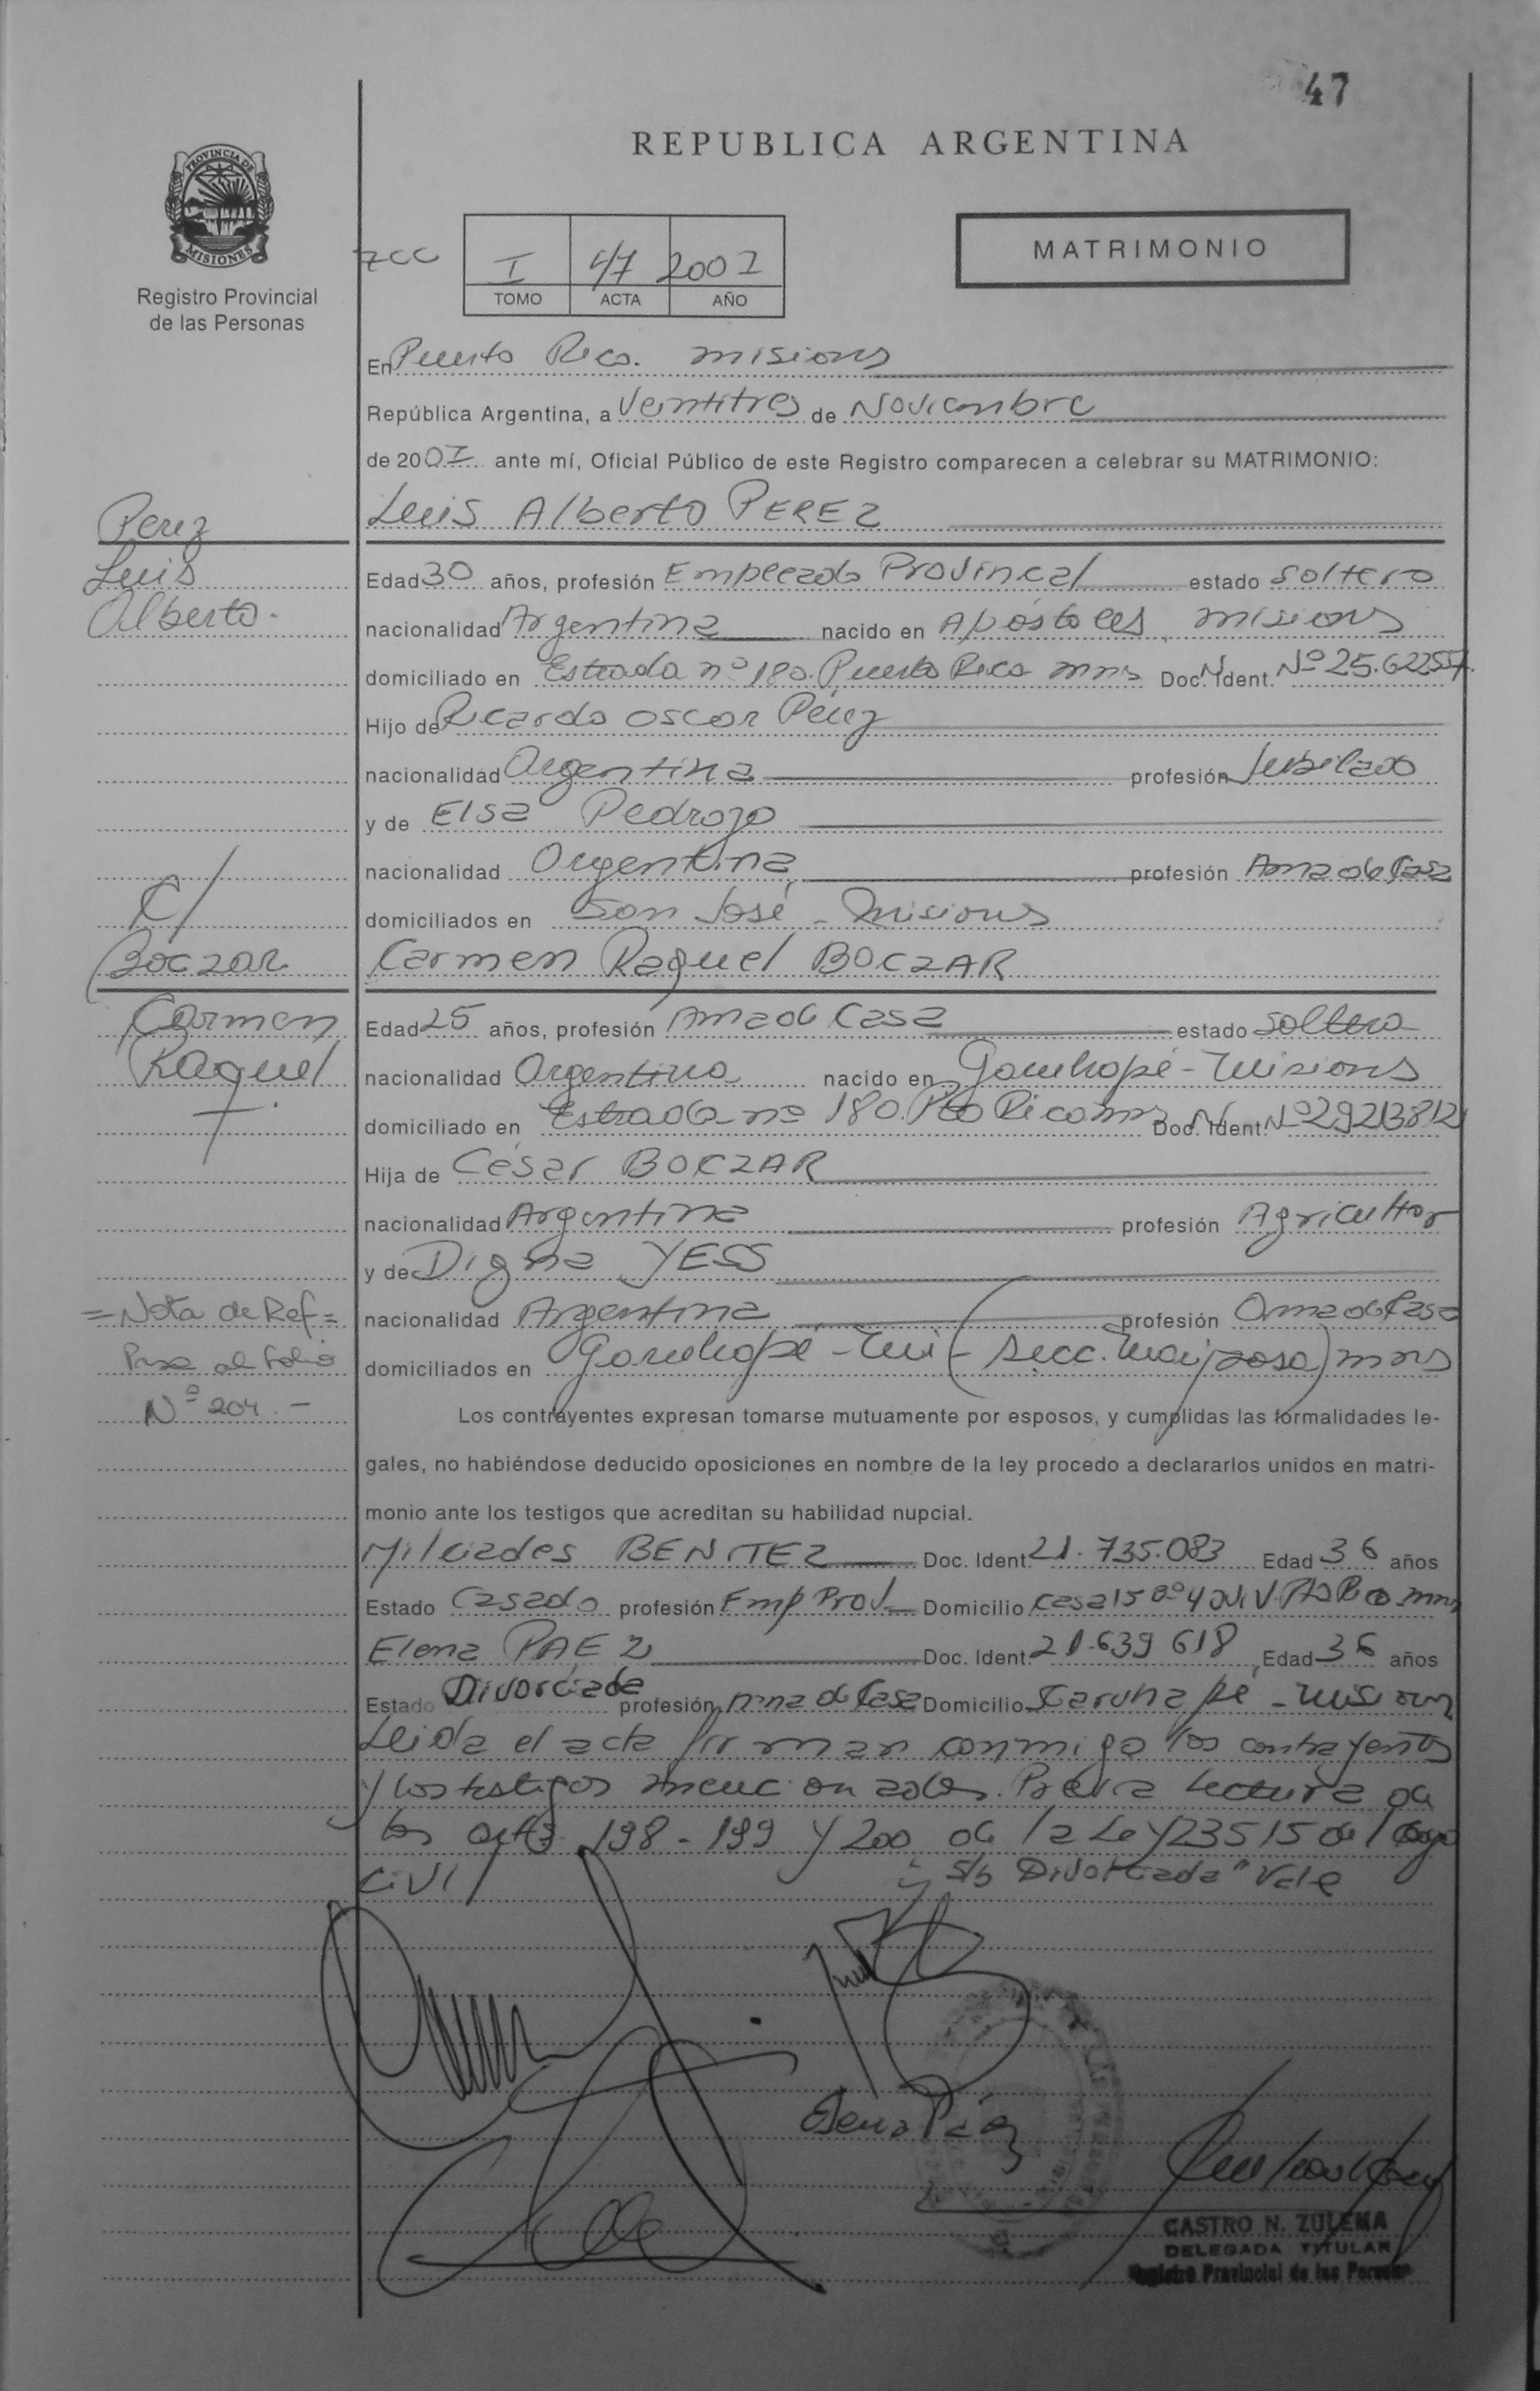 47
REPUBLICA ARGENTINA
PROVINCIA DE
MISIONES
Registro Provincial
de las Personas
I 47 2007
TOMO ACTA AÑO
MATRIMONIO
En Puerto Rico. misiones
República Argentina, a Veintitres de Noviembre
de 2007 ante mí, Oficial Público de este Registro comparecen a celebrar su MATRIMONIO:
Perez
Luis Alberto PEREZ
Luis
Edad 30 años, profesión Empleado Provincial estado soltero
Alberto.
nacionalidad Argentina nacido en Apóstoles, misiones
domiciliado en Estrada nº 180. Puerto Rico mns Doc. N. Ident. Nº 25.622557.
Hijo de Ricardo Oscar Pérez
nacionalidad Argentina profesión Jubilado
y de Elsa Pedrozo
nacionalidad Argentina profesión Ama de Casa
C/
domiciliados en San José - Misiones
Boczar
Carmen Raquel BOCZAR
Carmen
Edad 25 años, profesión Ama de Casa estado soltera
Raquel
nacionalidad Argentina nacido en Garuhapé - Misiones
domiciliado en Estrada nº 180. Pto Rico mns Doc. N. Ident. Nº 29213812
Hija de César BOCZAR
nacionalidad Argentina profesión Agricultor
y de Digna YESS
= Nota de Ref =
nacionalidad Argentina profesión Ama de Casa
Pasa al Folio
domiciliados en Garuhapé - Mi (Secc. ) mns
Nº 204. -
Los contrayentes expresan tomarse mutuamente por esposos, y cumplidas las formalidades le-
gales, no habiéndose deducido oposiciones en nombre de la ley procedo a declararlos unidos en matri-
monio ante los testigos que acreditan su habilidad nupcial.
Milciades BENITEZ Doc. Ident. 21.735.083 Edad 36 años
Estado Casado profesión Emp Prov. Domicilio Casa 15 mns
Elena PAEZ Doc. Ident. 21.639 618 Edad 36 años
Estado Divorciada profesión Ama de Casa Domicilio Garuhapé - Misiones
Leida el acta firman conmigo los contrayentes
y los testigos mencionados. Previa lectura de
los arts 198 - 199 y 200 de la Ley 23515 del Codigo
Civil
s/b Divorciada" Vale
Elena Páez
CASTRO N. ZULEMA
DELEGADA TITULAR
Registro Provincial de las Personas